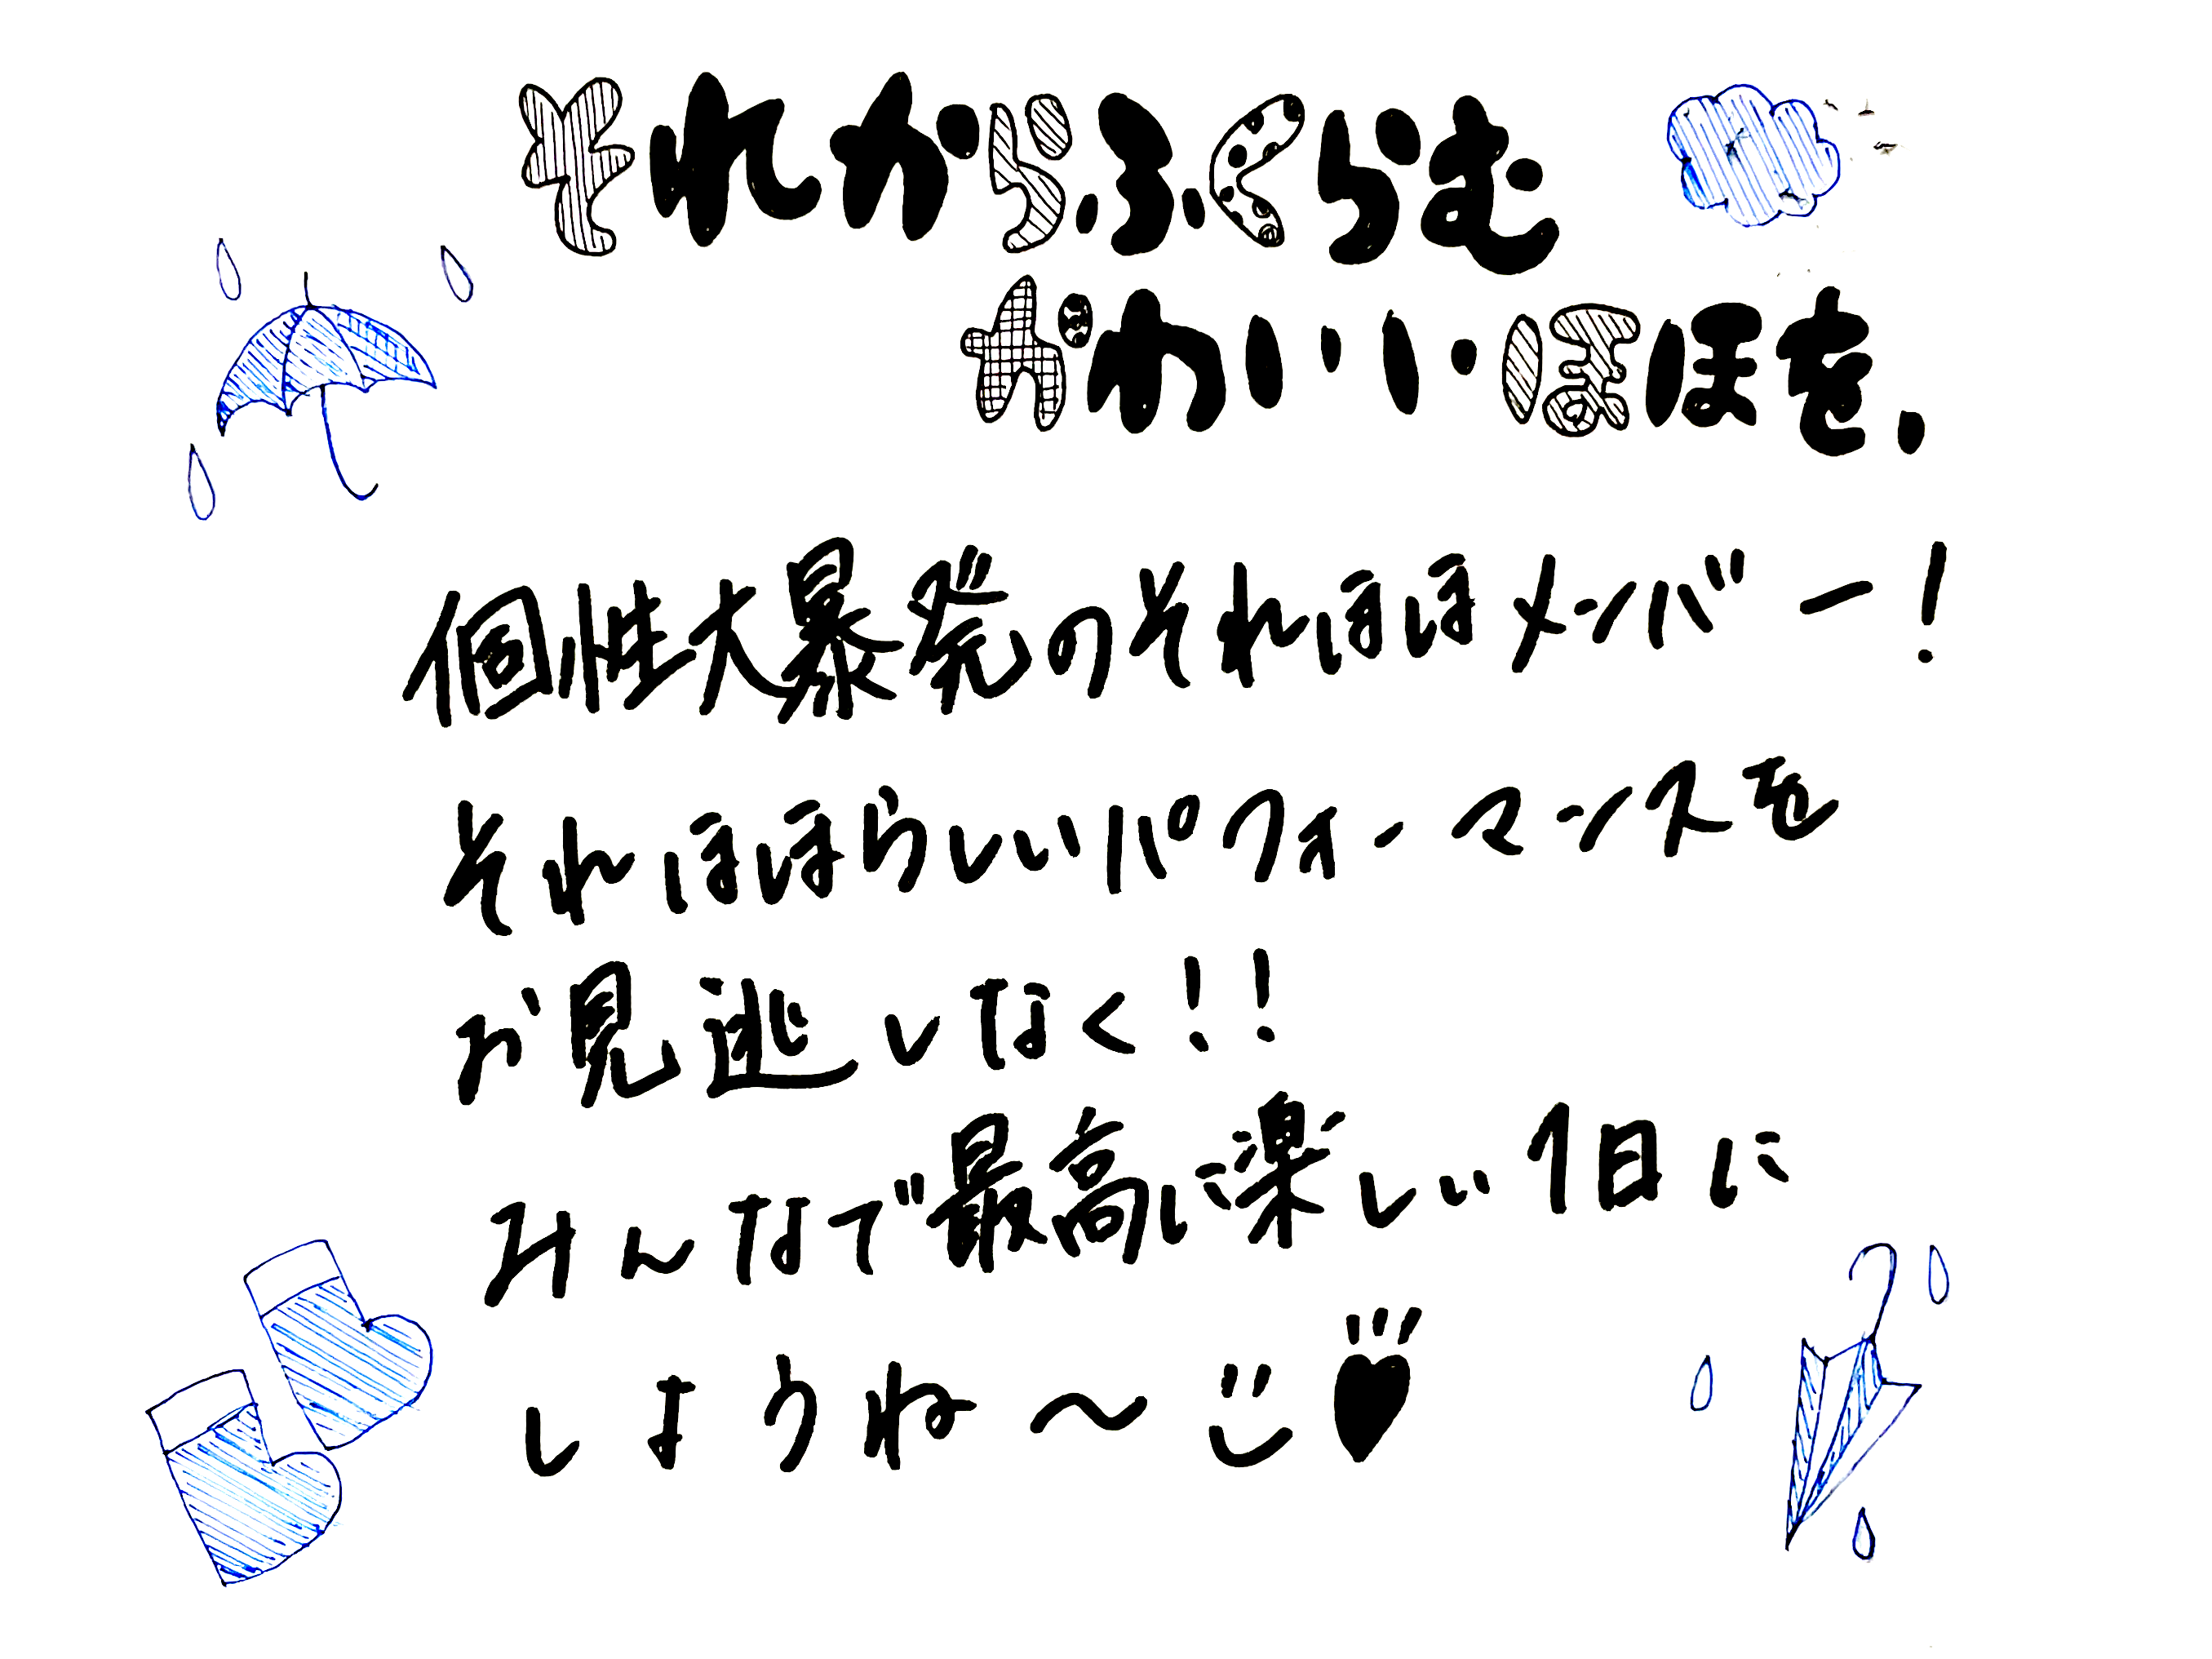 それから、ふくらむ
かわいいほほを、
個性大爆発のそれほほメンバー！
それほほらしいパフォーマンスを
お見逃しなく！！
みんなで最高に楽しい1日に
しようね〜